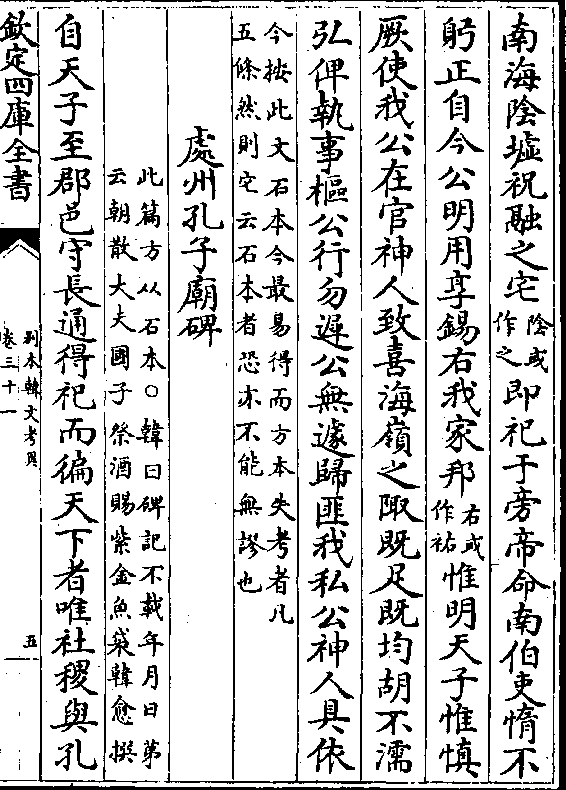 南海陰墟祝融之宅陰或作之即祀于旁帝命南伯吏惰不
躬正自今公明用享錫右我家邦右或作祐惟明天子惟慎
厥使我公在官神人致喜海嶺之陬既足既均胡不濡
弘俾執事樞公行勿遲公無遽歸匪我私公神人具依
今按此文石本今最易得而方本失考者凡
五條然則它云石本者恐亦不能無謬也
處州孔子廟碑
此篇方从石本○韓曰碑記不載年月日第
云朝散大夫國子祭酒賜紫金魚袋韓愈撰
自天子至郡邑守長通得祀而徧天下者唯社稷與孔
欽定四庫全書
卷三十一
別本韓文考異
五